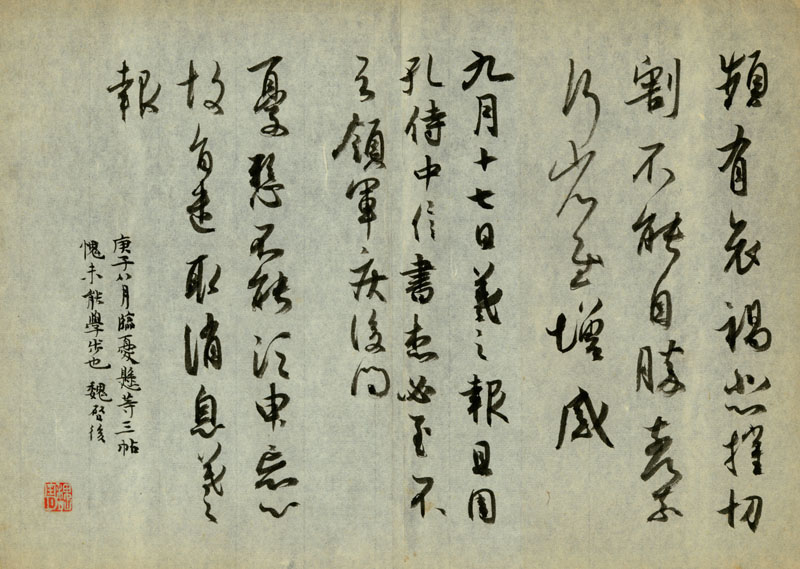 頻有哀禍悲摧切
割不能自勝奈何奈
何省慰增感
九月十七日羲之報且因
孔侍中信書想必至不
知領軍疾後問
憂懸不能須臾忘心
故旨遣取消息羲之
報
庚子八月臨憂懸等三帖
愧未能學步也 魏啓後